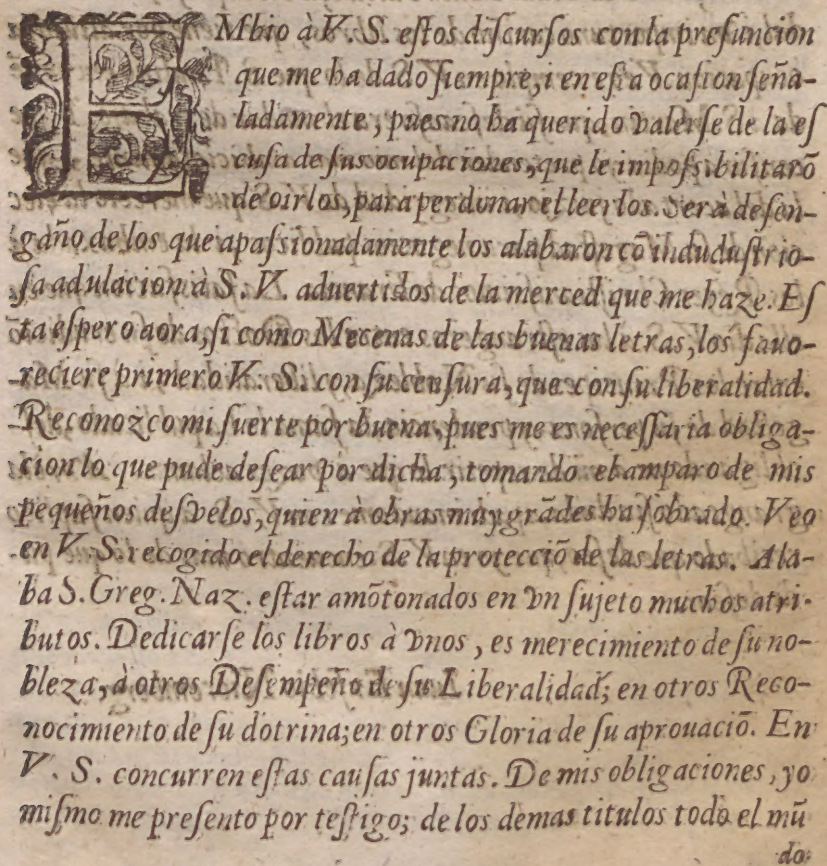 EMbio à V. S. estos discursos con la presuncion
que me ha dado siempre, i en esta ocasion seña-
ladamente, pues no ha querido valerse de la es
cusa de sus ocupaciones, que le impossibilitarõ
de oirlos, para perdonar el leerlos. Serà desen-
gaño de los que apassionadamente los alabaron cõ indudustrio-
sa adulacion à S. V. aduertidos de la merced que me haze. Es
ta espero aora, si como Mecenas de las buenas letras, los fauo-
reciere primero V. S. con su censura, que con su liberalidad.
Reconozco mi suerte por buena, pues me es necessaria obliga-
cion lo que pude desear por dicha, tomando el amparo de mis
pequeños desvelos, quien à obras muy grãdes ha sobrado. Veo
en V. S. recogido el derecho de la protecciõ de las letras. Ala-
ba S. Greg. Naz. estar amõtonados en vn sujeto muchos atri-
butos. Dedicarse los libros à vnos, es merecimiento de su no-
bleza, à otros Desempeño de su Liberalidad; en otros Reco-
nocimiento de su dotrina; en otros Gloria de su aprouaciõ. En
V. S. concurren estas causas juntas. De mis obligaciones, yo
mismo me presento por testigo; de los demas titulos todo el mũ
do